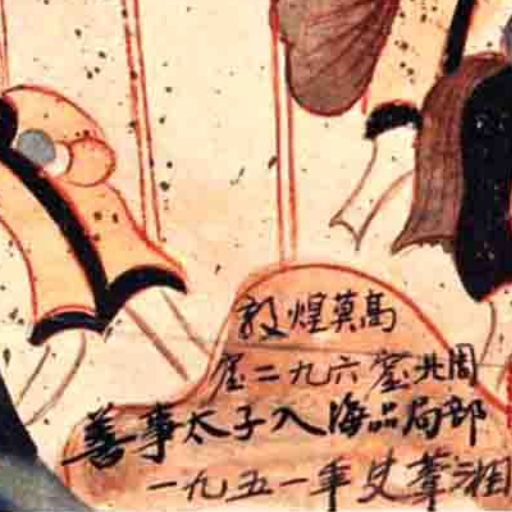 敦煌莫高
窟二九六窟北周
善事太子入海品局部
一九五一年史葦湘